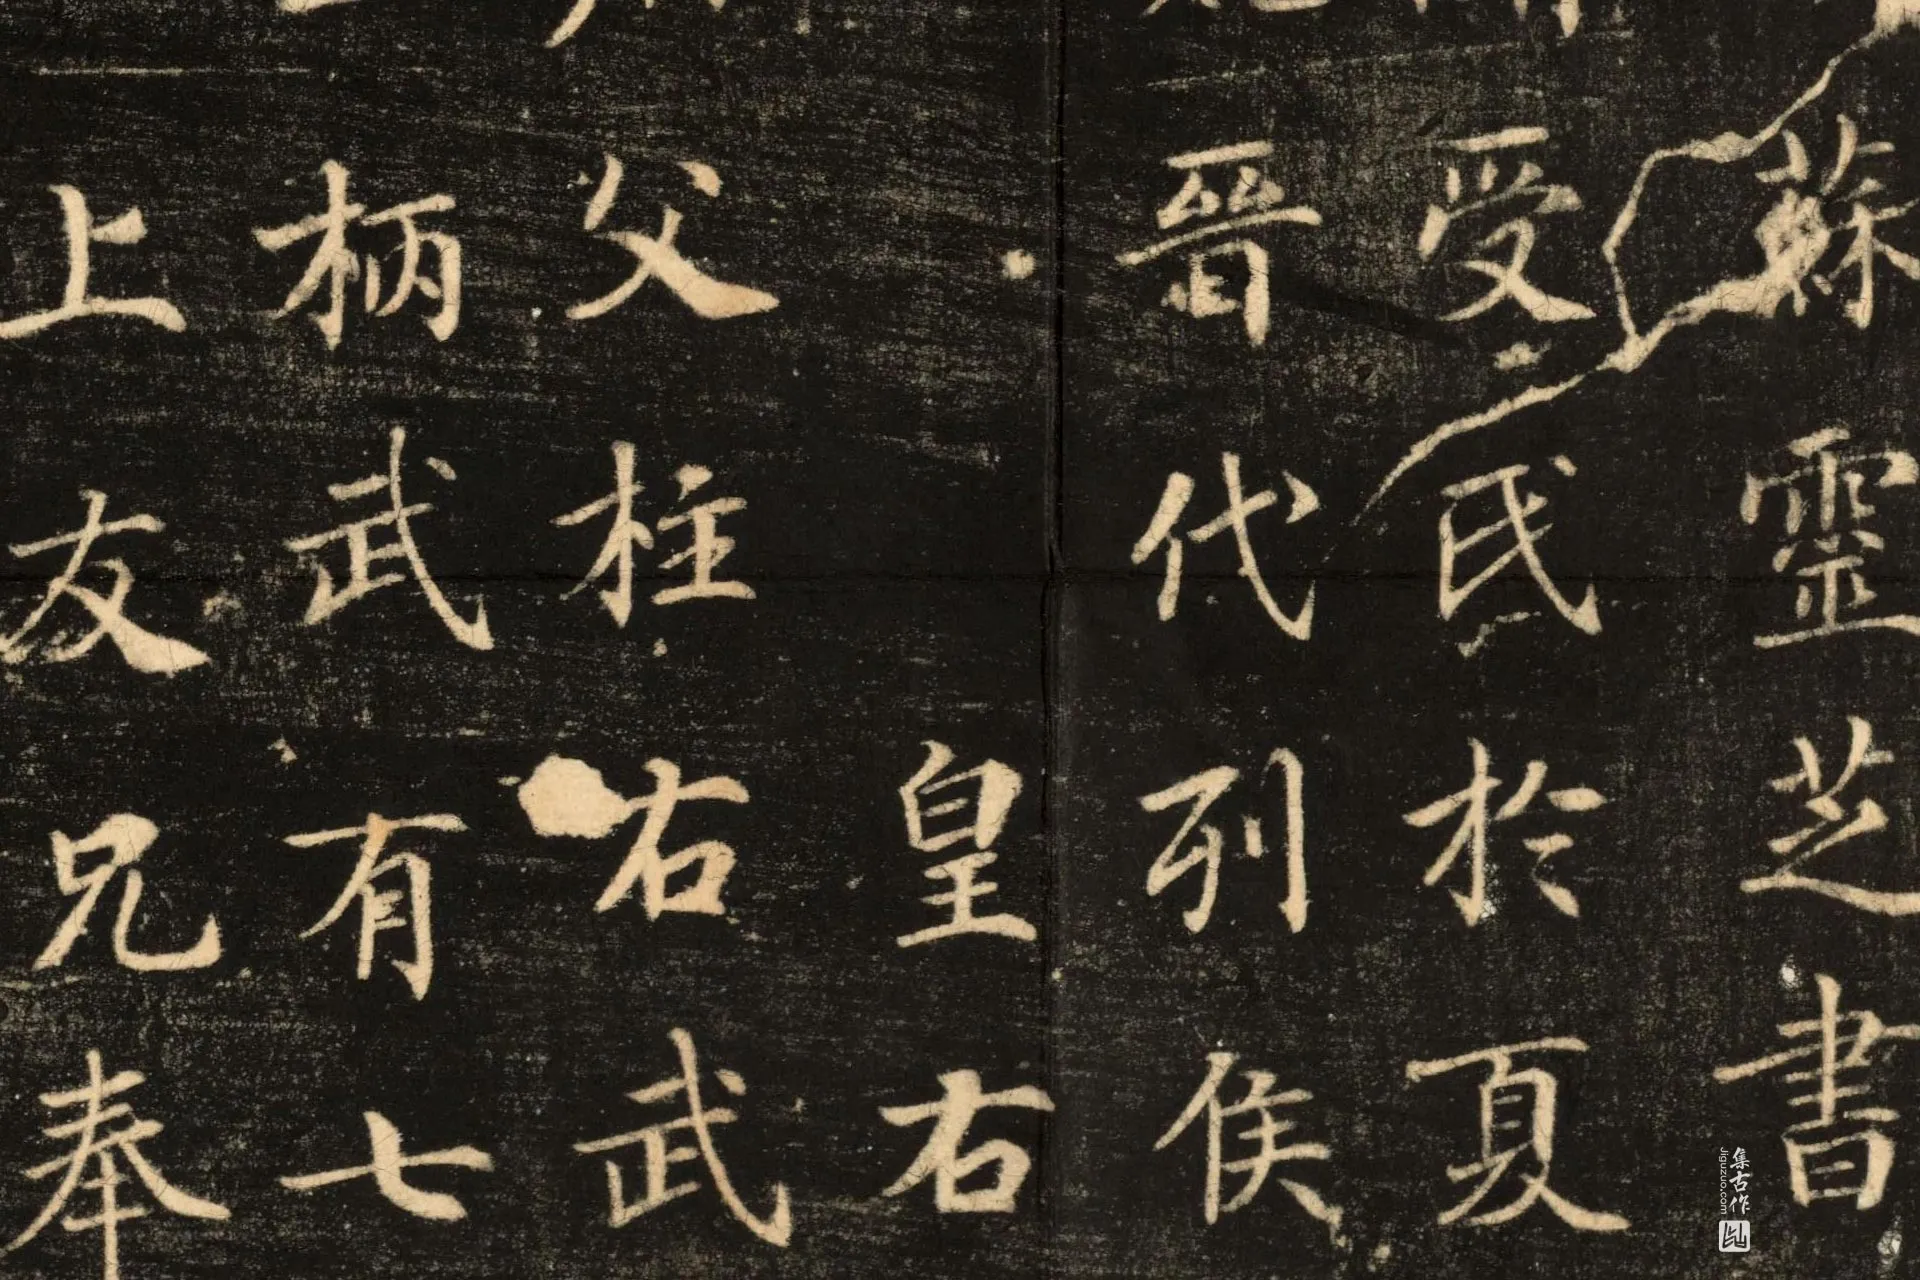 蘇靈芝書
受氏於夏
晉代列侯
皇右
父柱右武
柄武有七
上友兄奉
集古作
Jiguzuo.com